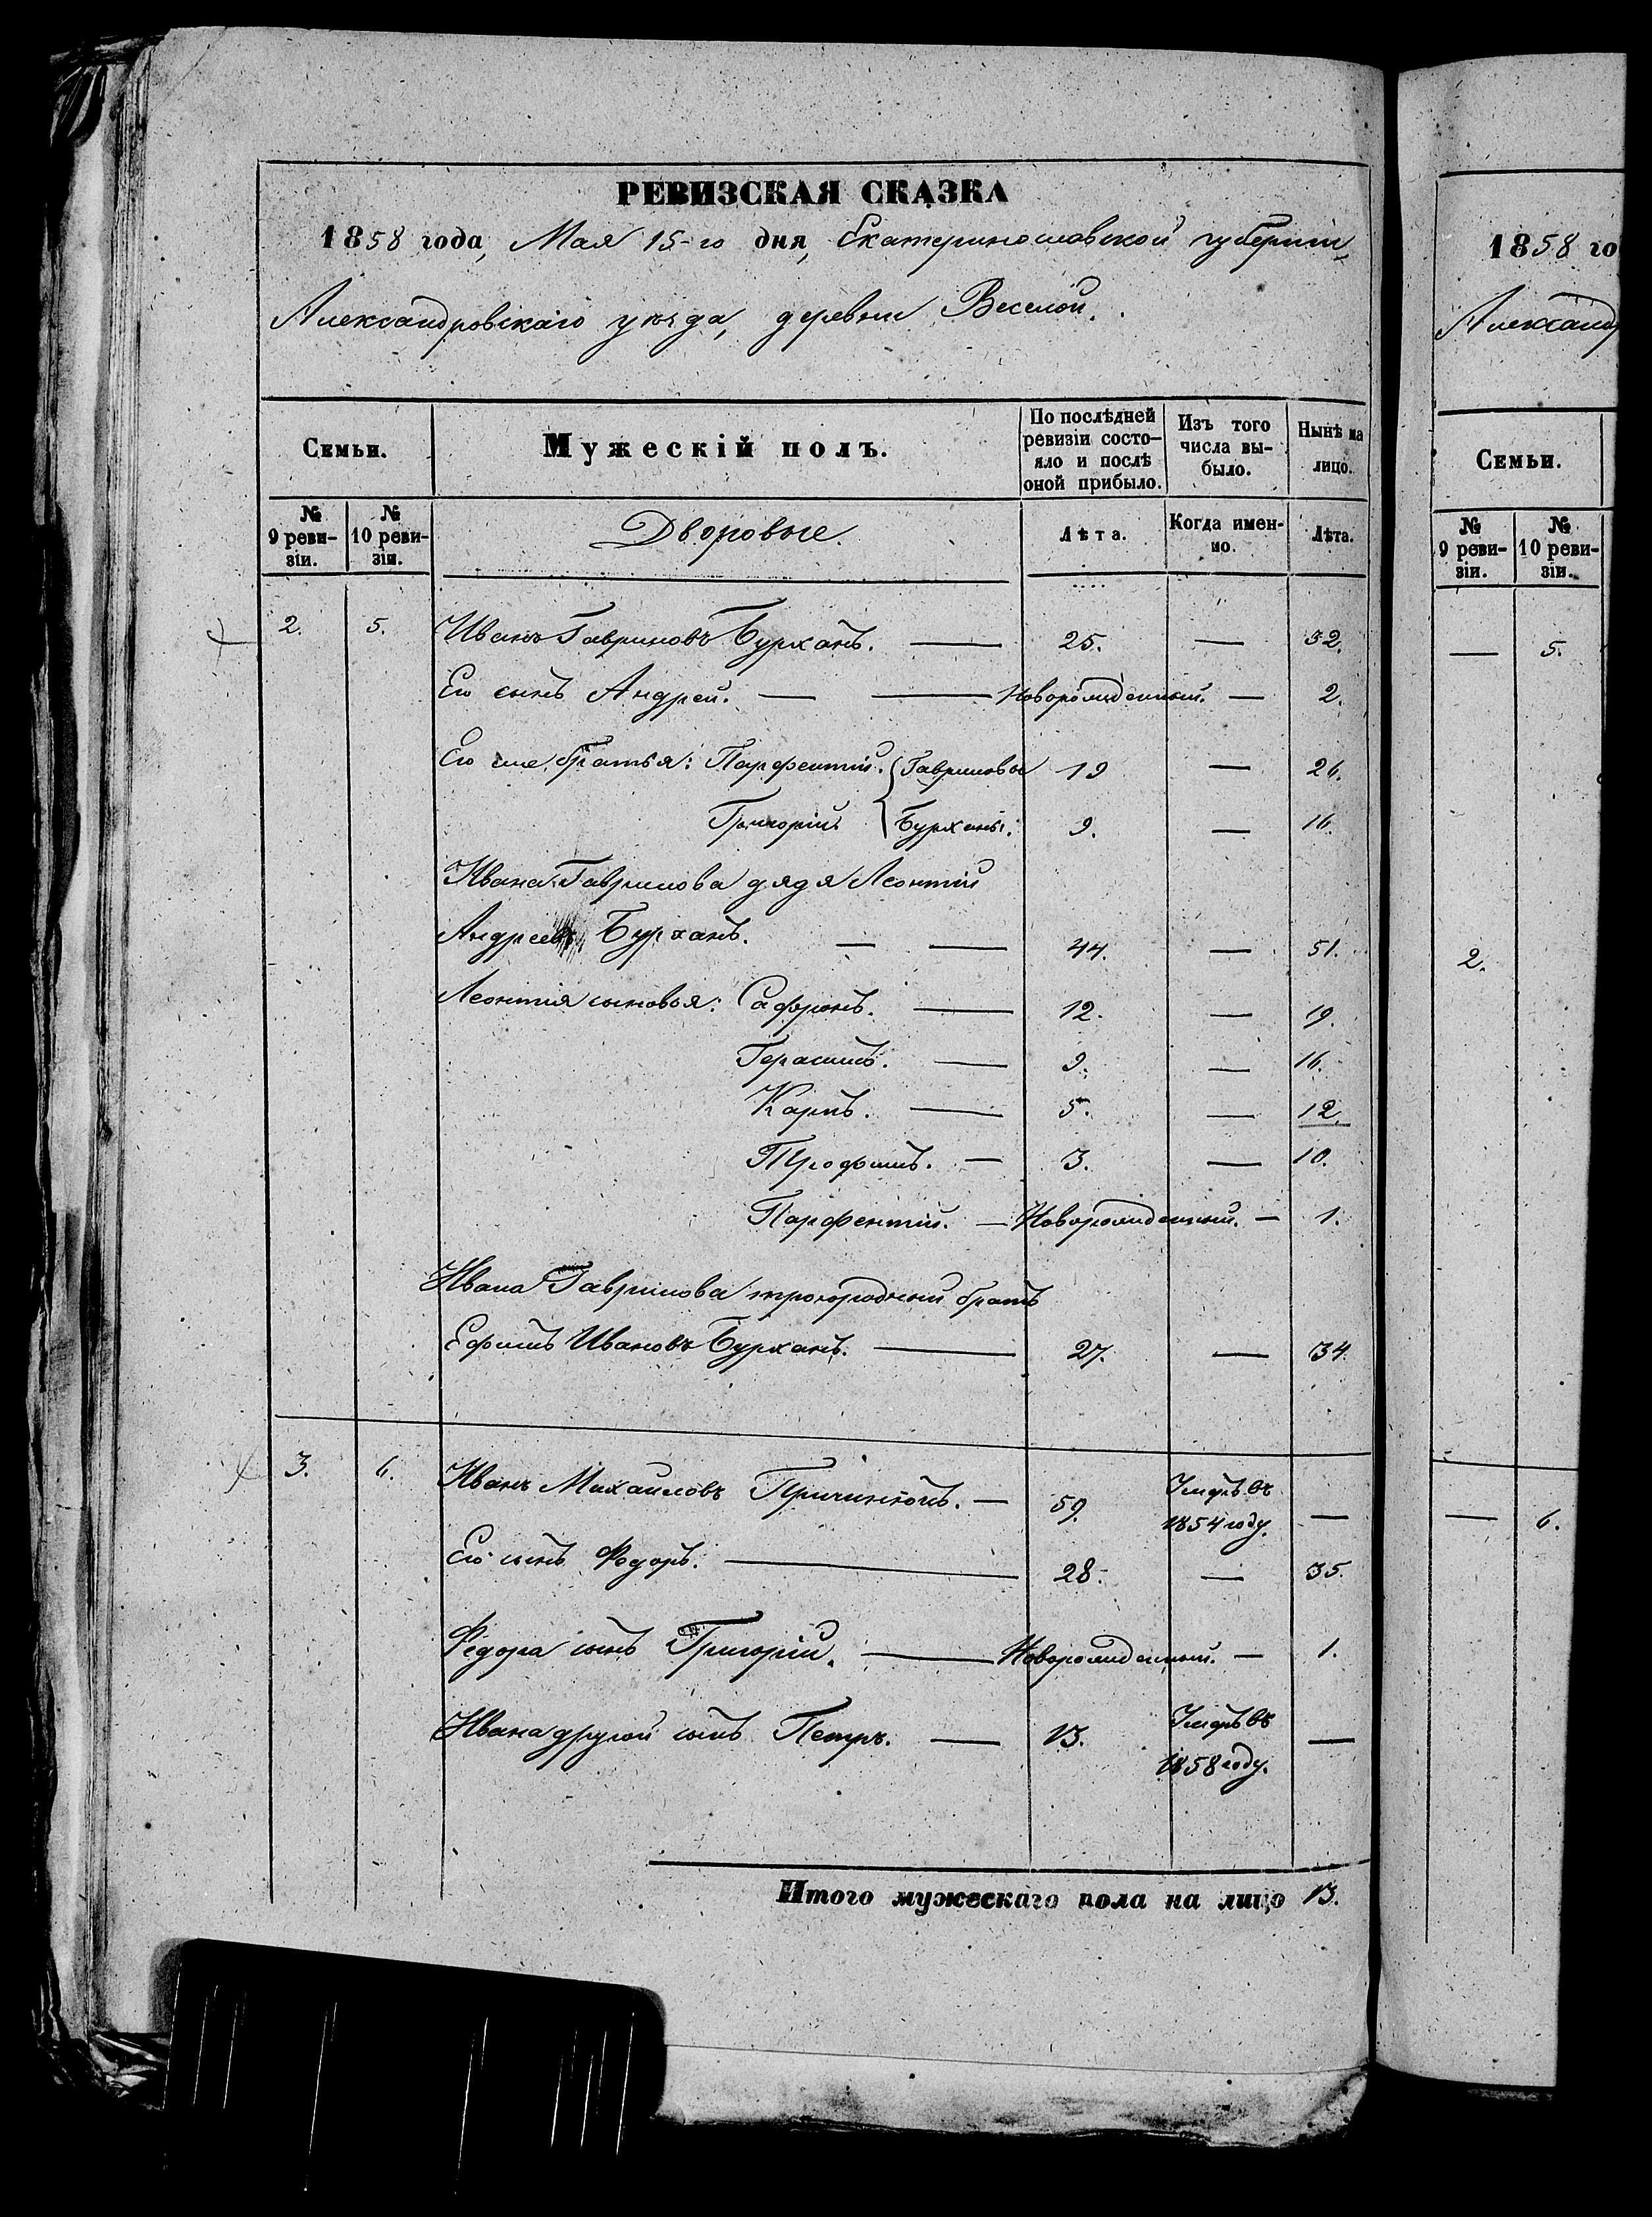 РЕВИЗСКАЯ СКАЗКА
1858 года, Мая 15-го дня, Екатеринославской губернии,
Александровскаго уѣзда, деревни Веселой.
Семьи.
Мужескій полъ.
По послѣдней ревизіи состо-
яло и послѣ оной прибыло.
Изъ того числа вы-
было.
Нынѣ на лицо.
№ 9 реви-
зіи.
№ 10 реви-
зіи.
Дворовые.
Лѣта.
Когда имен-
но.
Лѣта.
2. 5. Иванъ Гавриловъ Бурханъ. — 25. — 32.
Его сынъ Андрей. — — Новорожденный. — 2.
Его же братья: Парфентій. { Гавриловы 19 — 26.
Григорій { Бурханы. 9. — 16.
Ивана Гаврилова дядя Леонтій
Андреевъ Бурханъ. — — 44. — 51.
Леонтія сыновья: Сафронъ. — 12. — 19.
Герасимъ. — 9. — 16.
Карпъ. — 5. — 12.
Трофимъ. — 3. — 10.
Парфентій. — Новорожденный. — 1.
Ивана Гаврилова троюродный братъ
Ефимъ Ивановъ Бурханъ. — 27. — 34.
3. 6. Иванъ Михайловъ — 59. Умеръ въ
1854 году. —
Его сынъ Федоръ. — 28. — 35.
Федора сынъ Григорій. — Новорожденный. — 1.
Ивана другой сынъ Петръ. — 13. Умеръ въ
1858 году. —
Итого мужескаго пола на лицо 13.
1858 го
Александ
Семьи.
№ 9 реви-
зіи.
№ 10 реви-
зіи.
— 5.
2.
— 6.